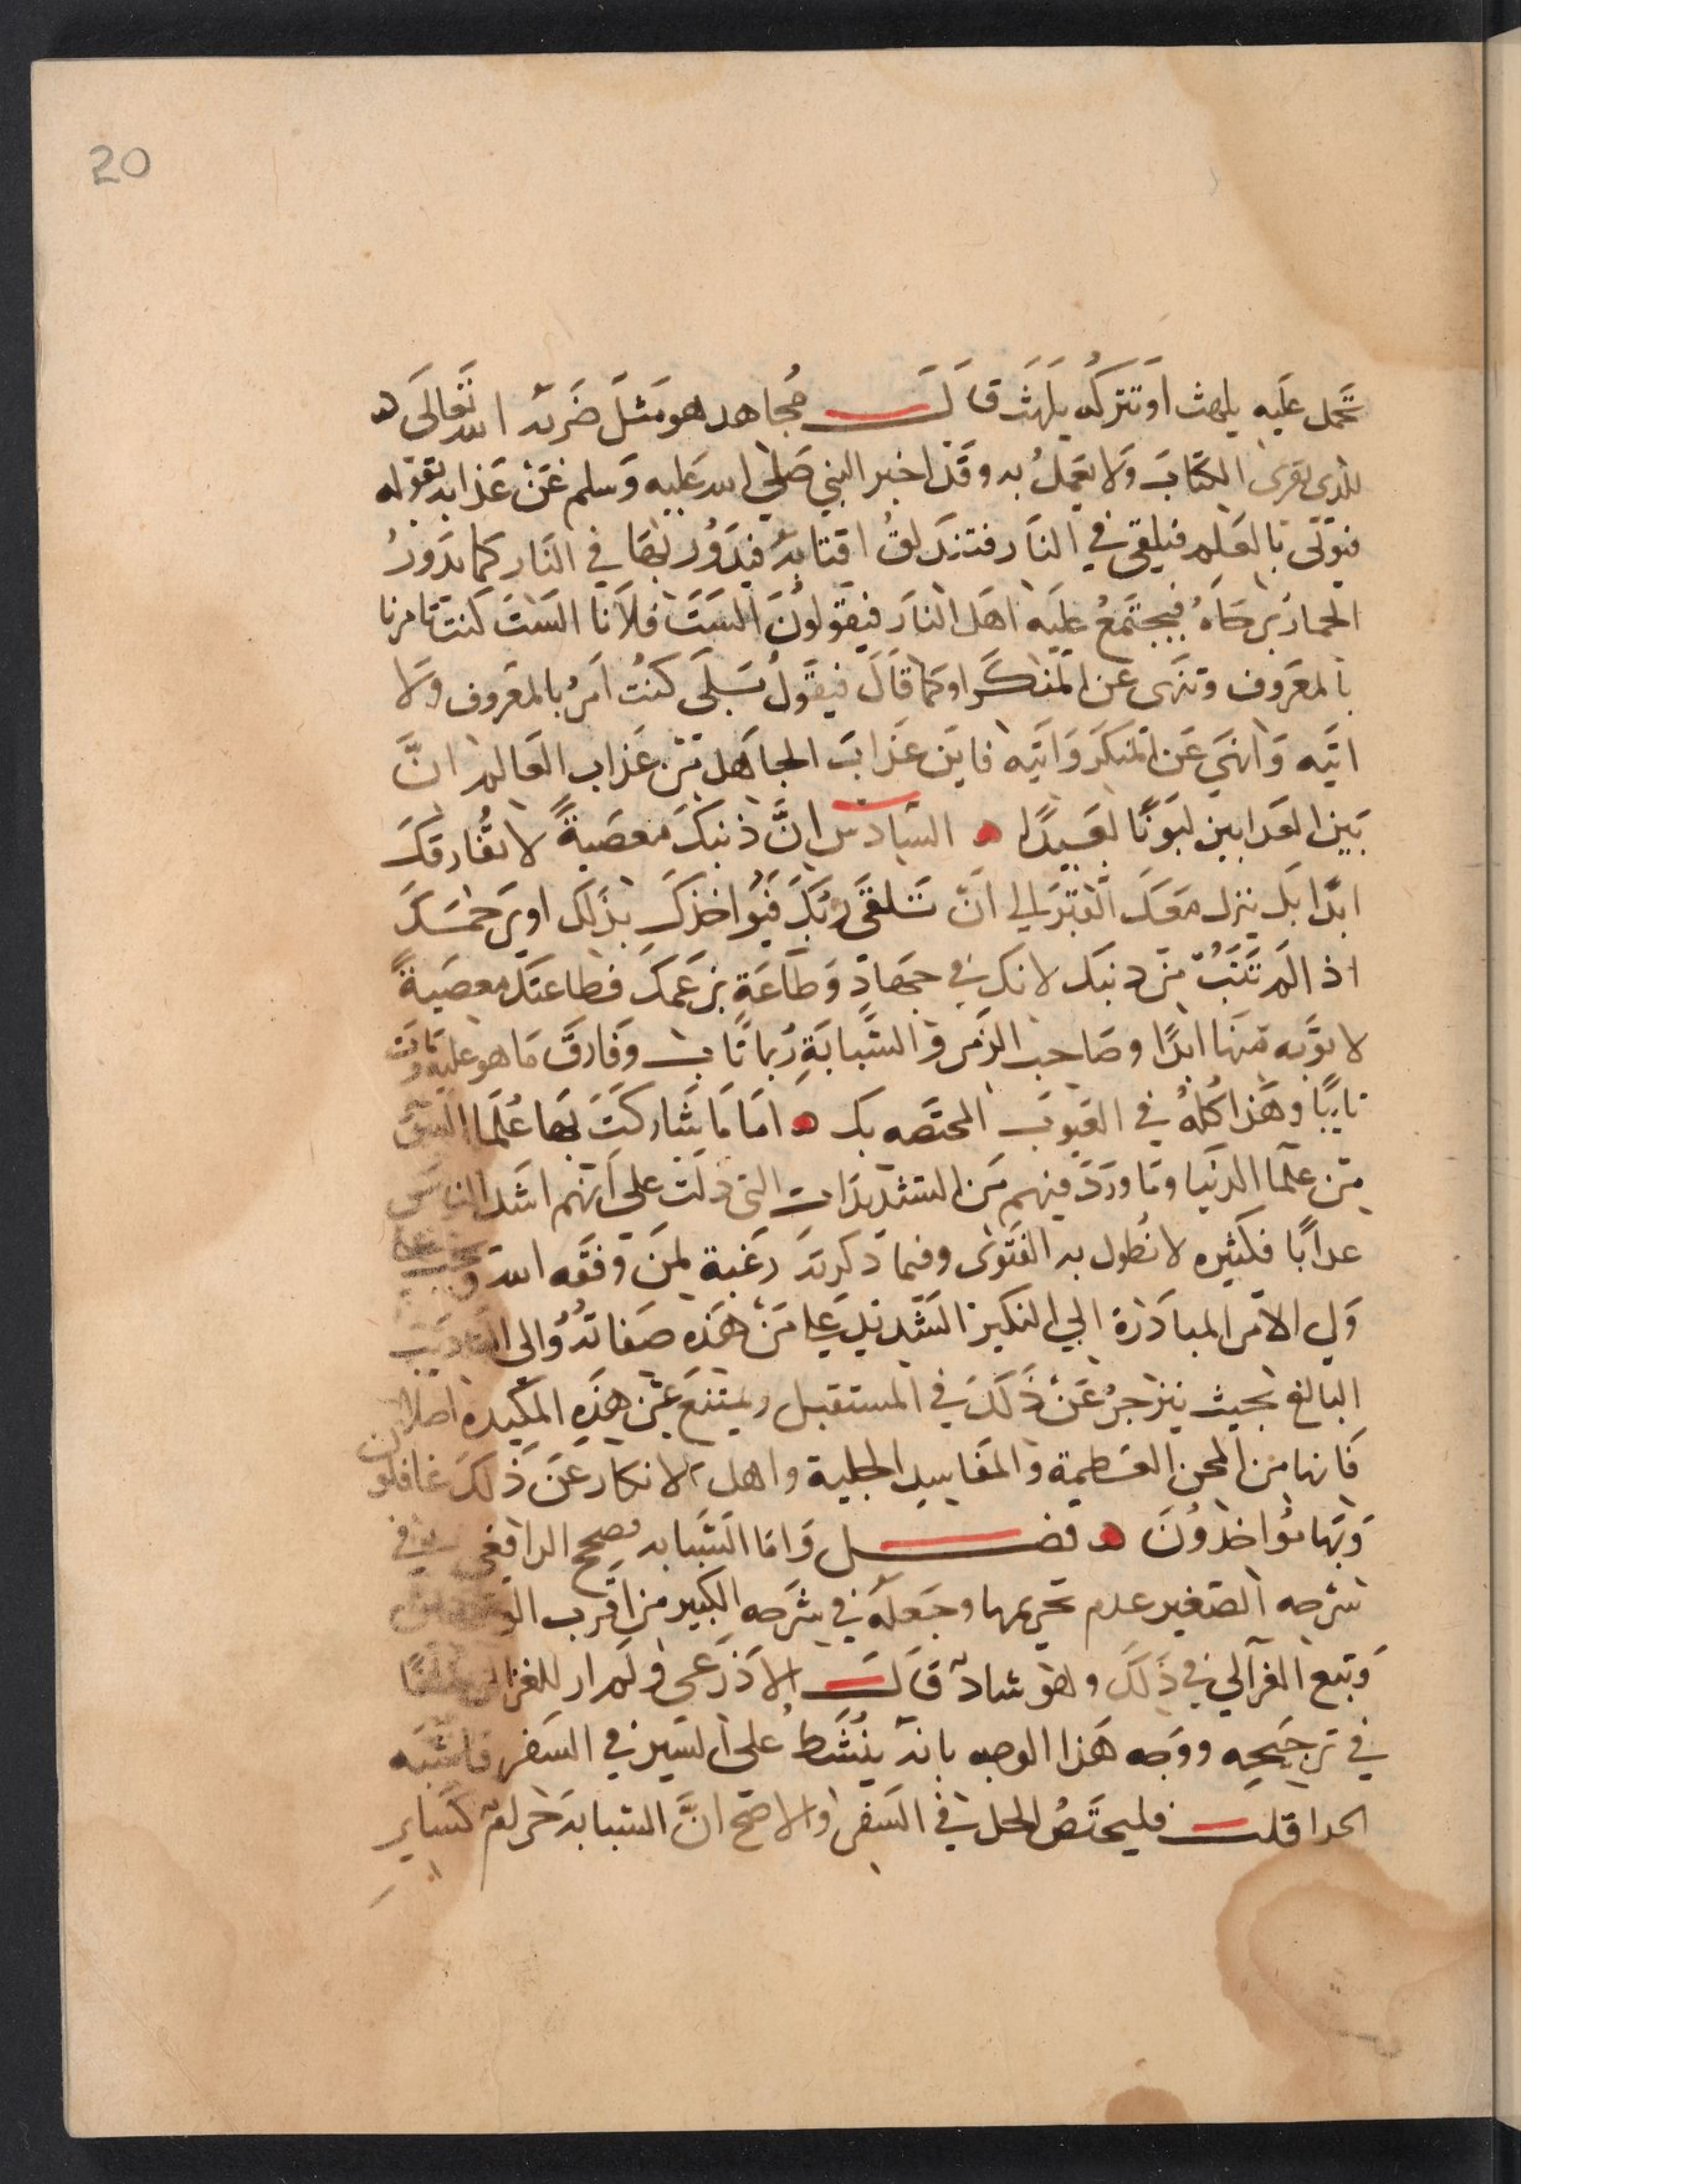 20
تحمل عليه يلهث او تتركه يلهث قالـــــ مجاهد هو مثل ضربه الله تعالى ه
للذي يقرى الكتاب ولا يعمل به وقد اخبر النبي صلى الله عليه وسلم عن عذابه بقوله
فيوتى بالعلم فيلقى في النار فتندلق اقتابه فيدور بها في النار كما يدور
الحمار برحاه فيجتمع عليه اهل النار فيقولون الست فلانا الست كنت تامرنا
بالمعروف وتنهى عن المنكر او كما قال فيقول بلى كنت امر بالمعروف ولا
اتيه وانهى عن المنكر واتيه فاين عذاب الجاهل من عذاب العالم ان
بين العذابين لبونا لبعيدا ه السادس ان ذنبك معصية لا تفارقك
ابدا بل ينزل معك القبر الى ان تلقى ربك فيواخذك بذلك او يرحمك
اذ الم تتب من ذنبك لانك في جهاد وطاعة بزعمك فطاعتك معصية
لا توبه منها ابدا وصاحب الزمر والشبابة ربما تاب وفارق ما هو عليه ومات
تايبا وهذا كله في العيوب المختصه بك ه اما ما شاركت بها علما السو
من علما الدنيا وما ورد فيهم من التشديدات التي دلت على انهم اشد الناس
عدابا فكثيره لا نطول به الفتوى وفيما ذكرته رغبة لمن وفقه الله ويجب على
ولي الامر المبادرة الى النكير الشديد على من هذه صفاته والى التاديب
البالغ بحيث ينزجر عن ذلك في المستقبل ويمتنع عن هذه المكيده اصلا
فانها من المحن العظيمة والمفاسد الجلية واهل الانكار عن ذلك غافلون
وبها مؤاخذون ه فصــــــل واما الشبابه فصحح الرافعي في
شرحه الصغير عدم تحريمها وجعله في شرحه الكبير من اقرب
وتبع الغزالي في ذلك وهو شاد قالـــ الاذرعي ولم ار للغزالي سلفا
في ترجيحه ووجه هذا الوجه بانه ينشط على السير في السفر فاشبه
الحدا قلت فليختص الحل في السفر والاصح ان الشبابه حرام كساير